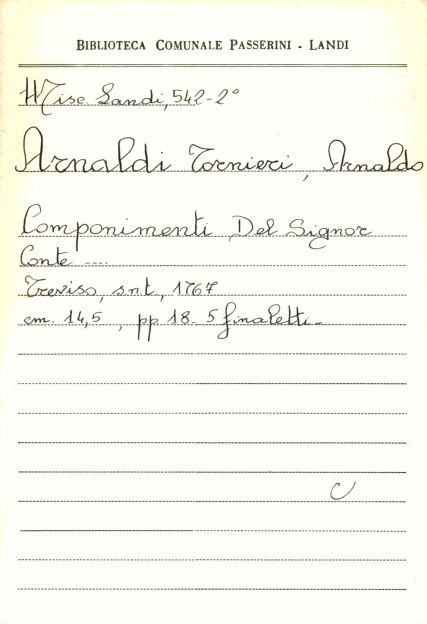 BIBLIOTECA COMUNALE PASSERINI - LANDI
Misc. Landi, 542-2°
Arnaldi Tornieri, Arnaldo
Componimenti Del Signor
Conte ....
Treviso, s.n.t., 1767
cm. 14,5, pp 18- 5 finaletti-
C